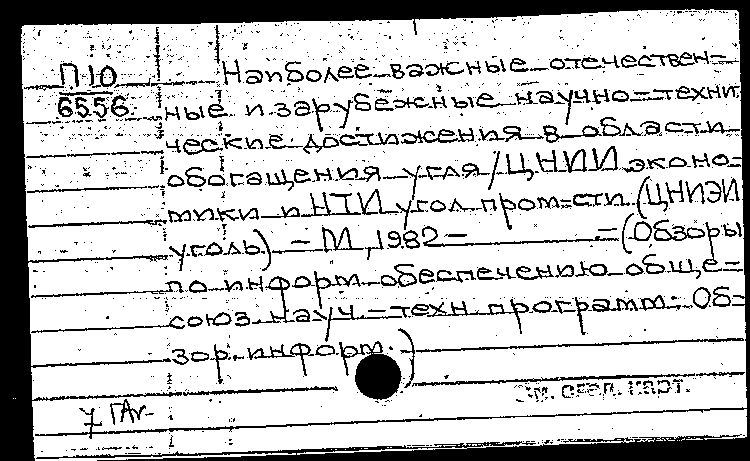 П10
6556
Наиболее важные отечествен=
ные и зарубежные научно=техни
ческие достижения в области
обогащения угля/ЦНИИ эконо-
мики и НТИ угол пром=сти (ЦНИЭИ
уголь). - М, 1982 - = (Обзоры
по информ обеспечению обще-
союз. науч - техн программ: Об=
зор. информ.)
См. след. карт.